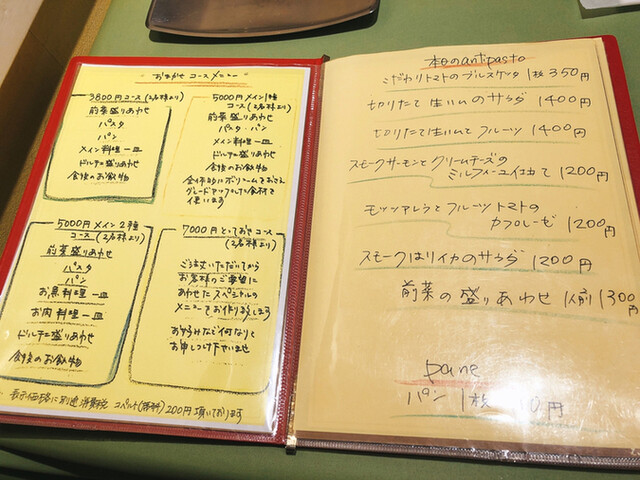 おまかせ コースメニュー
3800円コース(2名様より)
前菜盛りあわせ
パスタ
パン
メイン料理一皿
ドルチェ盛りあわせ
食後のお飲物
5000円メイン1種
コース(2名様より)
前菜盛りあわせ
パスタ・パン
メイン料理一皿
ドルチェ盛りあわせ
食後のお飲物
全体的にボリュームも
グレードアップした食材で
使います
5000円メイン2種
コース(2名様より)
前菜盛りあわせ
パスタ
パン
お魚料理一皿
お肉料理一皿
ドルチェ盛りあわせ
食後のお飲物
7000円とっておきコース
(2名様より)
ご注文いただいてから
お客様のご要望に
あわせたスペシャルの
メニューでお作り致します
お好みなど何なりと
お申しつけ下さいませ
表示価格に別途消費税 コペルト(席料)200円頂いております
本日のantipasto
こだわりトマトのブルスケッタ 1枚350円
切りたて生ハムのサラダ 1400円
切りたて生ハムとフルーツ 1400円
スモークサーモンとクリームチーズの
ミルフィーユ仕立て 1200円
モッツァレラとフルーツトマトの
カプレーゼ 1200円
スモークはりイカのサラダ 1200円
前菜の盛りあわせ 1人前1300円
pane
パン 1枚 0円